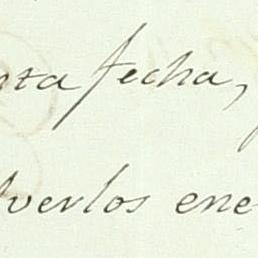 ta fecha,
verlos ene